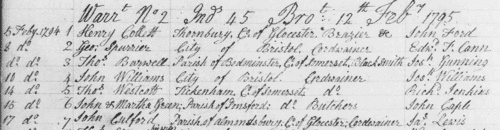 Warrt. No 2 Ind. 45 Brot. 12th Feby 1795
5 Feby. 1794 1 Henry Collett Thornbury, C. of Glocester Brazier & John Ford
8 do. 2 Geo. Spurrier City of Bristol Cordwainer Edwd. T. Cann
do. do. 3 Thos. Barwell Parish of Bedminster, C. of Somerset, Black Smith Jos. Gunning
10 do. 4 John Williams City of Bristol Cordwainer Jos. Williams
14 do. 5 Thos. Westcott Tickenham, C. of Somerset, do. Richd. Jenkins
16 do. 6 John & Martha Green, Parish of Do. Butchers John Caple
17 do. 7 John Culford Parish of Almondsbury, C. of Glocester, Cordwainer Jas. Lewis